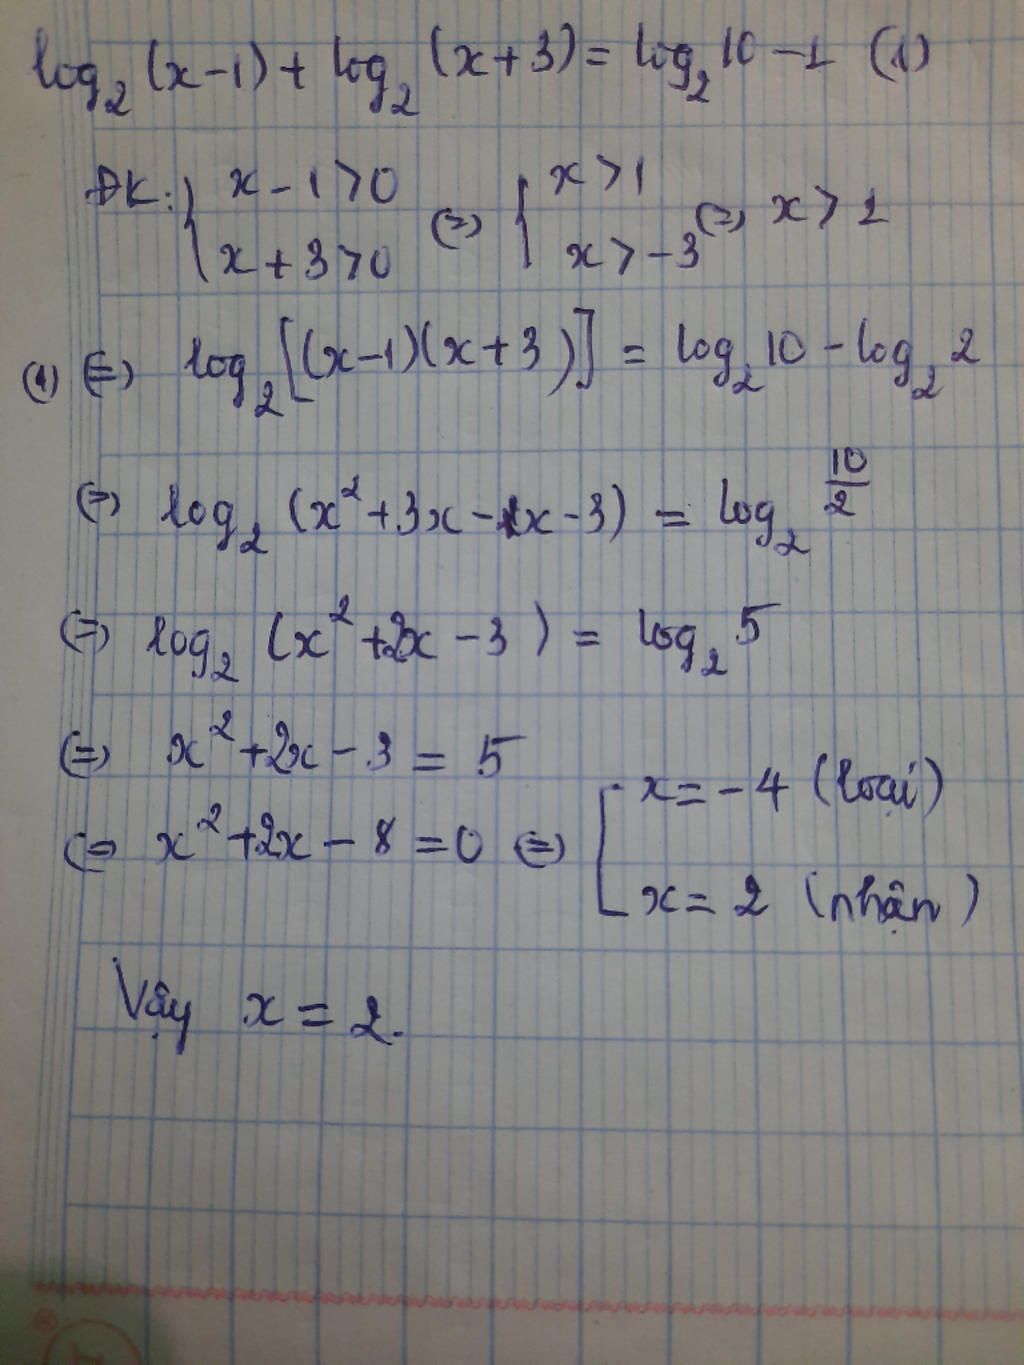 log₂(x-1) + log₂(x+3) = log₂10 - 1 (1)
ĐK: { x-1>0 (=) { x>1 (=) x>1
x+3>0 x>-3
(1) (=) log₂[(x-1)(x+3)] = log₂10 - log₂2
(=) log₂(x²+3x-1x-3) = log₂ 10/2
(=) log₂(x²+2x-3) = log₂5
(=) x²+2x-3 = 5
(=) x²+2x-8=0 (=) [ x=-4 (loại)
x=2 (nhận)
Vậy x=2.